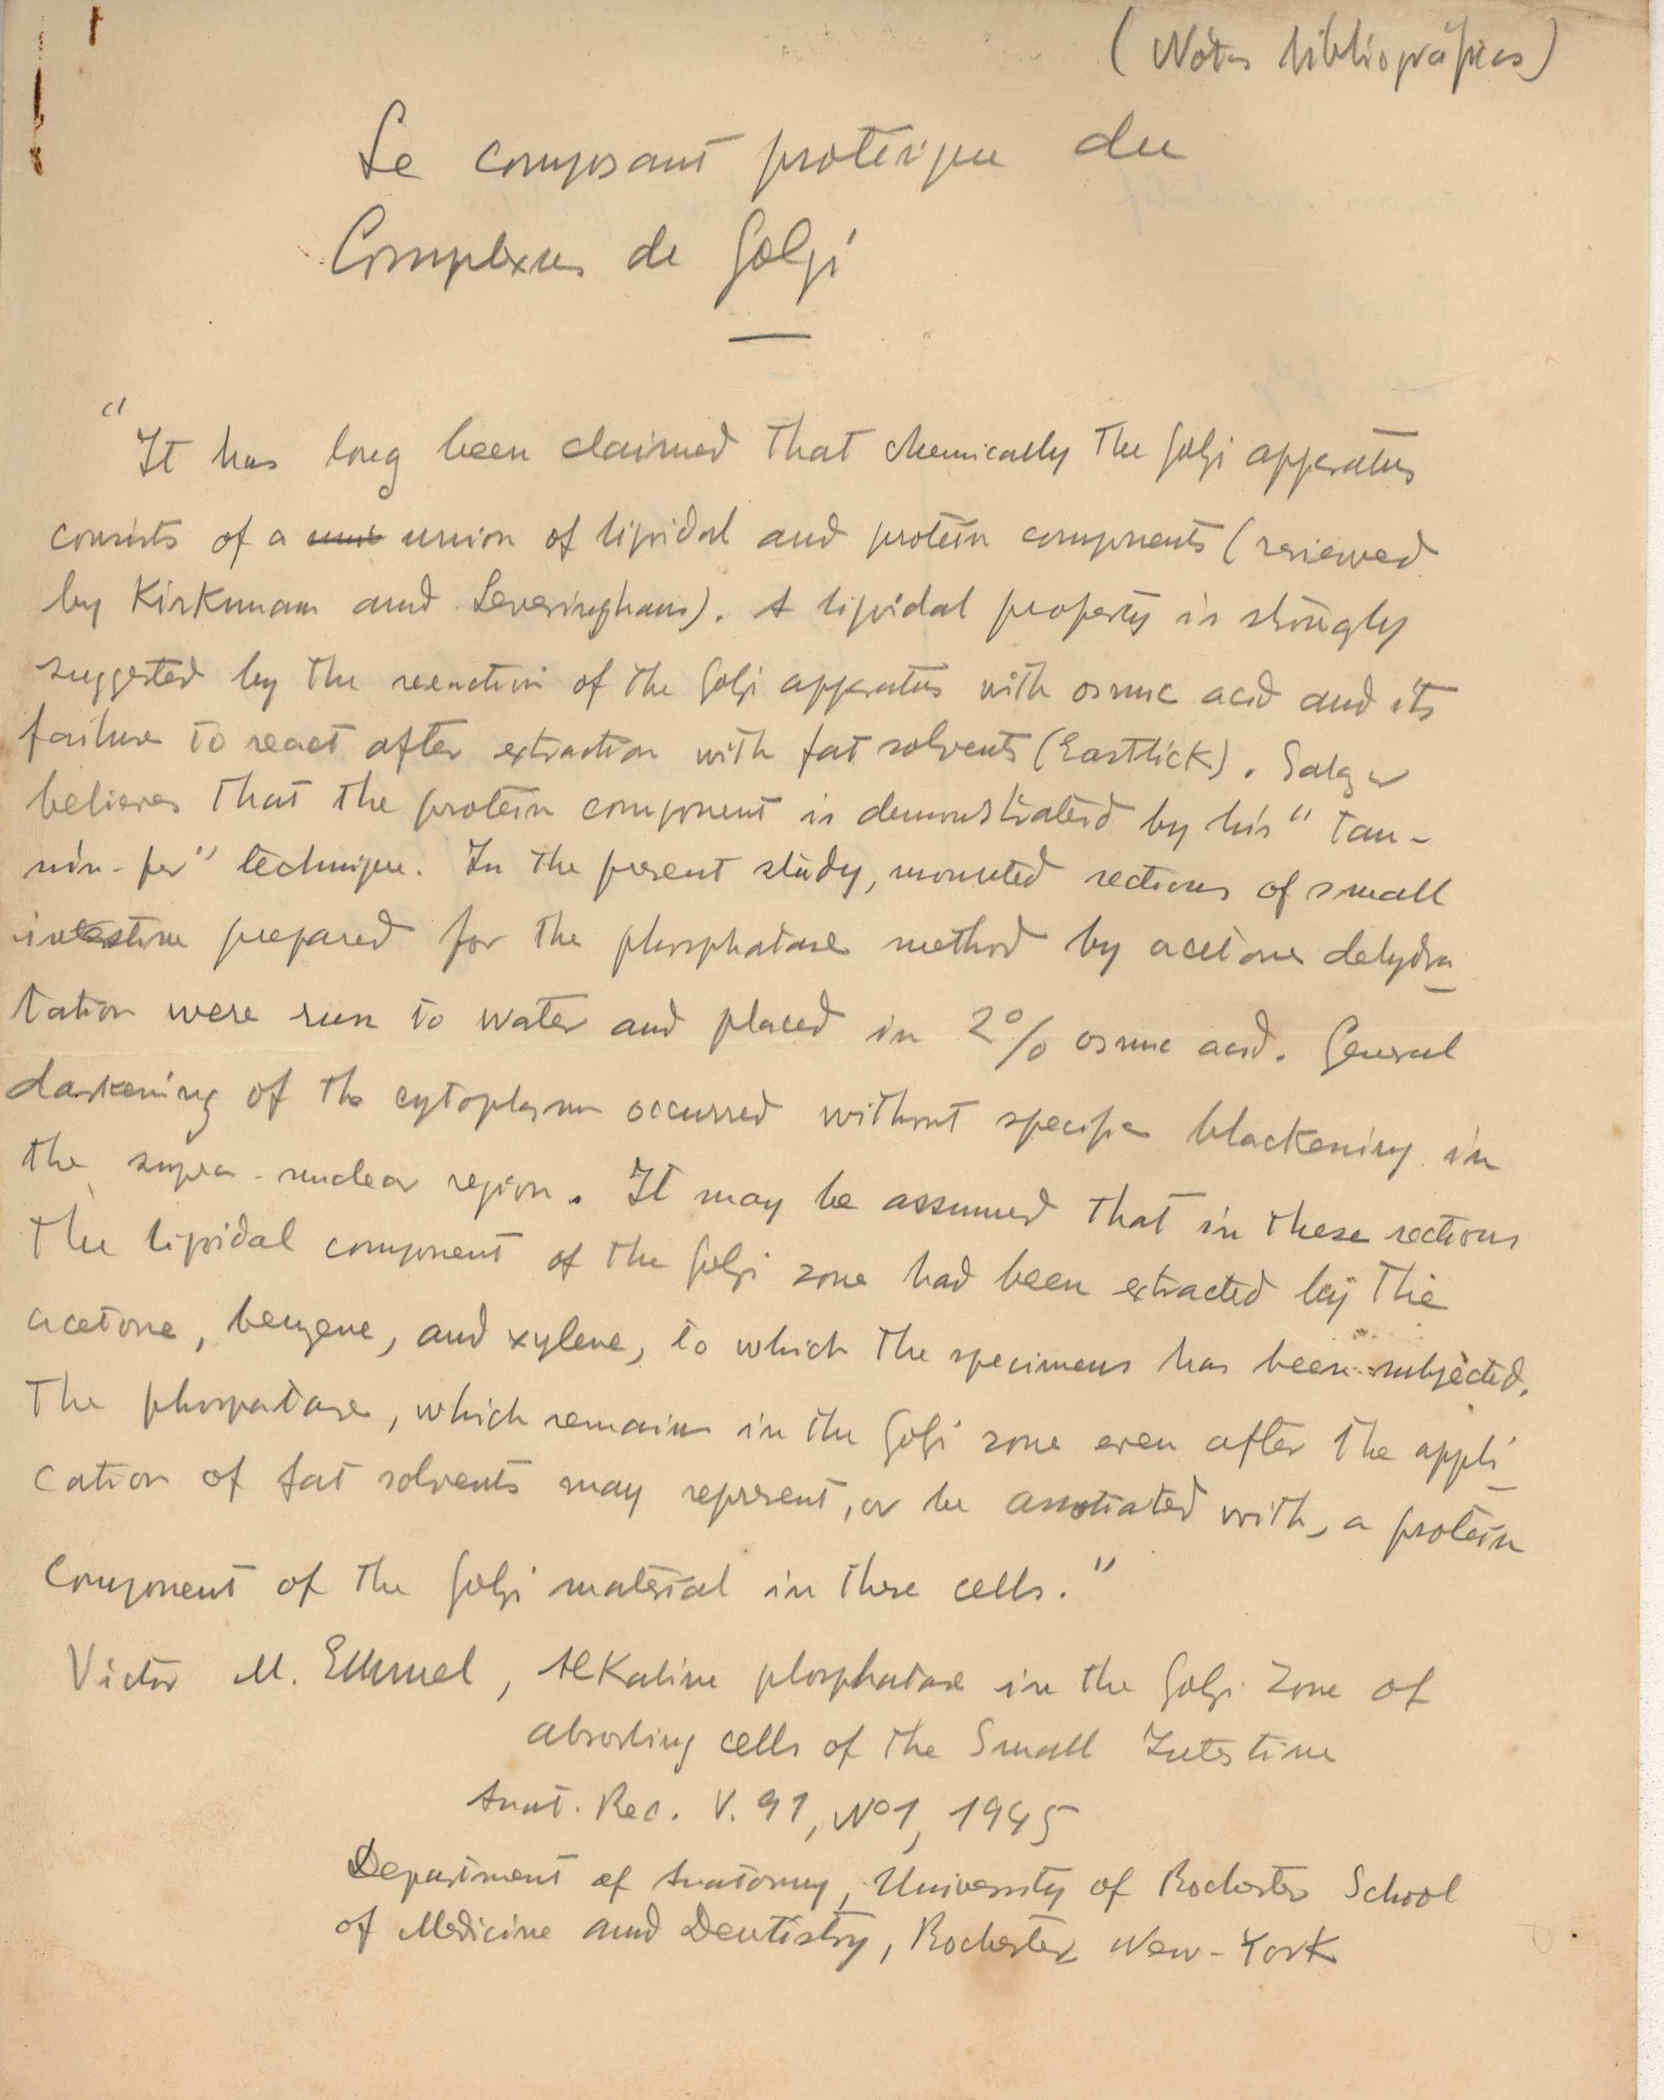 (Notas bibliográficas)
Le composant protéique du
Complexus de Golgi
"It has long been claimed that chemically the Golgi apparatus
consists of a union of lipidal and protein components (reviewed
by Kirkmann and Severinghaus). A lipidal property is strongly
suggested by the reaction of the Golgi apparatus with osmic acid and its
failure to react after extraction with fat solvents (Eastlick).
believes that the protein component is demonstrated by his "tan-
nin-fer" technique. In the present study, mounted sections of small
intestine prepared for the phosphatase method by acetone dehydra-
tation were run to water and placed in 2% osmic acid. General
darkening of the cytoplasm occurred without specific blackening in
the supra-nuclear region. It may be assumed that in these sections
the lipidal component of the Golgi zone had been extracted by the
acetone, benzene, and xylene, to which the specimens has been subjected.
The phospatase, which remains in the Golgi zone even after the appli-
cation of fat solvents may represent, or be associated with, a protein
component of the Golgi material in these cells."
Victor M. Emmel, Alkaline phosphatase in the Golgi Zone of
absorbing cells of the Small Intestine
Anat. Rec. V. 91, Nº1, 1945
Department of Anatomy, University of Rochester School
of Medicine and Dentistry, Rochester New-York